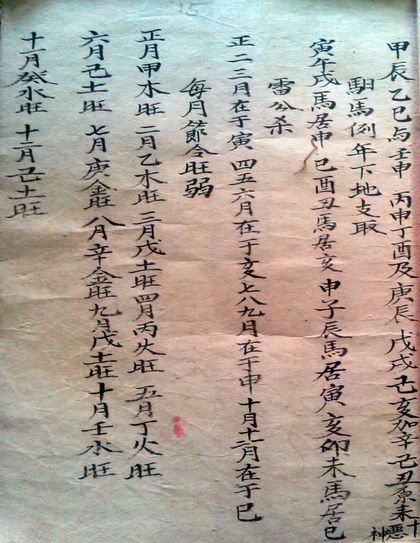 甲辰乙巳与壬申 丙申丁酉及庚辰 戊戌己亥加辛巳 己丑原来十惡神
馹馬例年下地支取
寅午戌馬居申 巳酉丑馬居亥 申子辰馬居寅 亥卯未馬居巳
雷公杀
正二三月在于寅 四五六月在于亥 七八九月在于申 十月十一十二月在于巳
每月節令旺弱
正月甲木旺 二月乙木旺 三月戊土旺 四月丙火旺 五月丁火旺
六月己土旺 七月庚金旺 八月辛金旺 九月戊土旺 十月壬水旺
十一月癸水旺 十二月己土旺